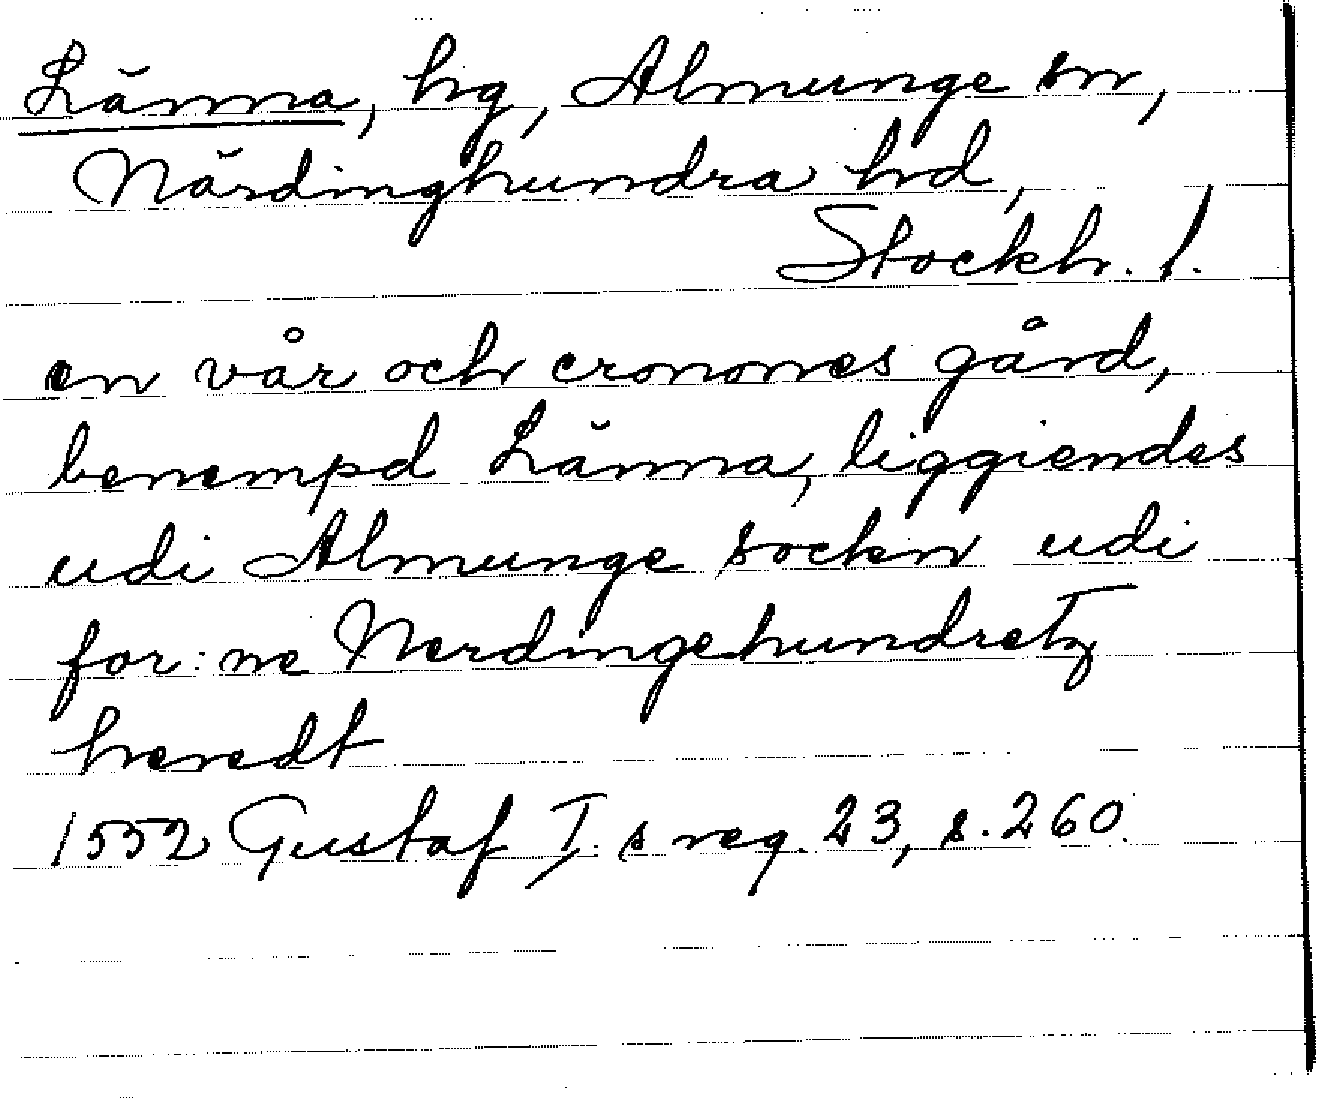 Länna, hg, Almunge sn,
Närdinghundra hd,
Stockh. l.
en vår och cronones gård,
benempd Länna, liggiendes
udi Almunge sockn udi
for:ne Nerdingehundretz
heredt
1552 Gustaf I.s reg. 23, s. 260.